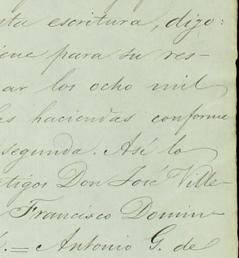 sta escritura, digo:
iene para su res-
ar los ocho mil
es haciendas conforme
segunda. Así lo
stigos Don José Ville-
Francisco Domin-
= Antonio G. de